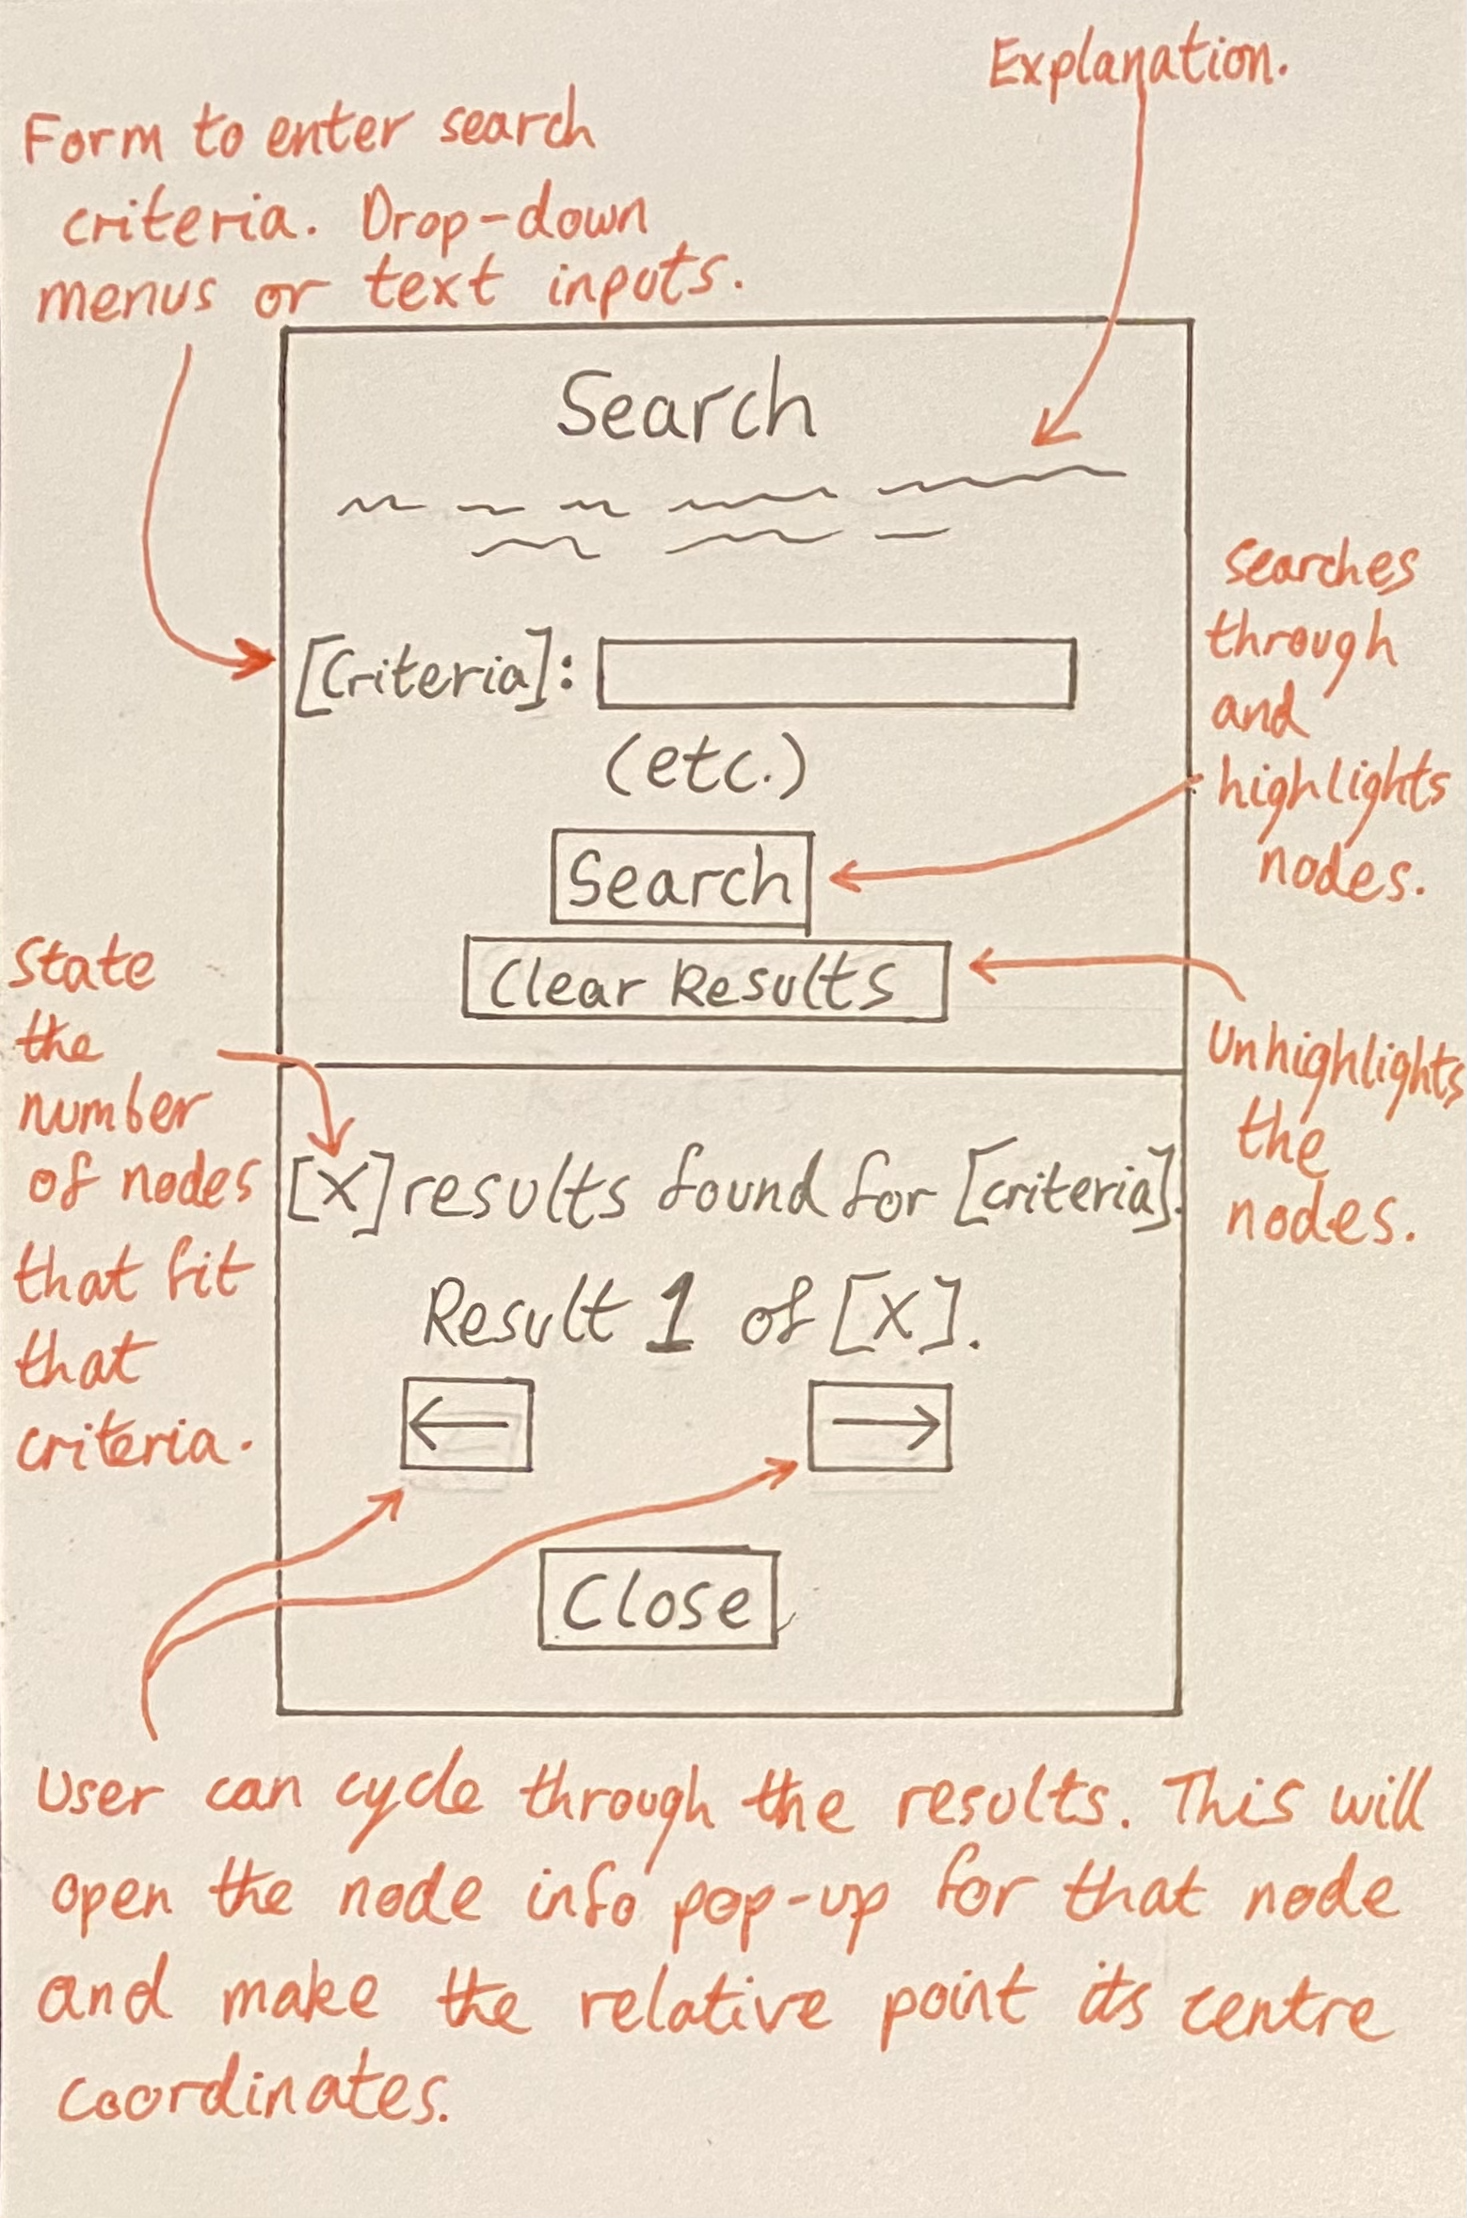 Explanation.
Form to enter search
criteria. Drop-down
menus or text inputs.
Search
[Criteria]:
(etc.)
Search
Clear Results
searches
through
and
highlights
nodes.
Unhighlights
the
nodes.
State
the
number
of nodes
that fit
that
criteria.
[X] results found for [criteria].
Result 1 of [X].
←
→
Close
User can cycle through the results. This will
open the node info pop-up for that node
and make the relative point its centre
coordinates.